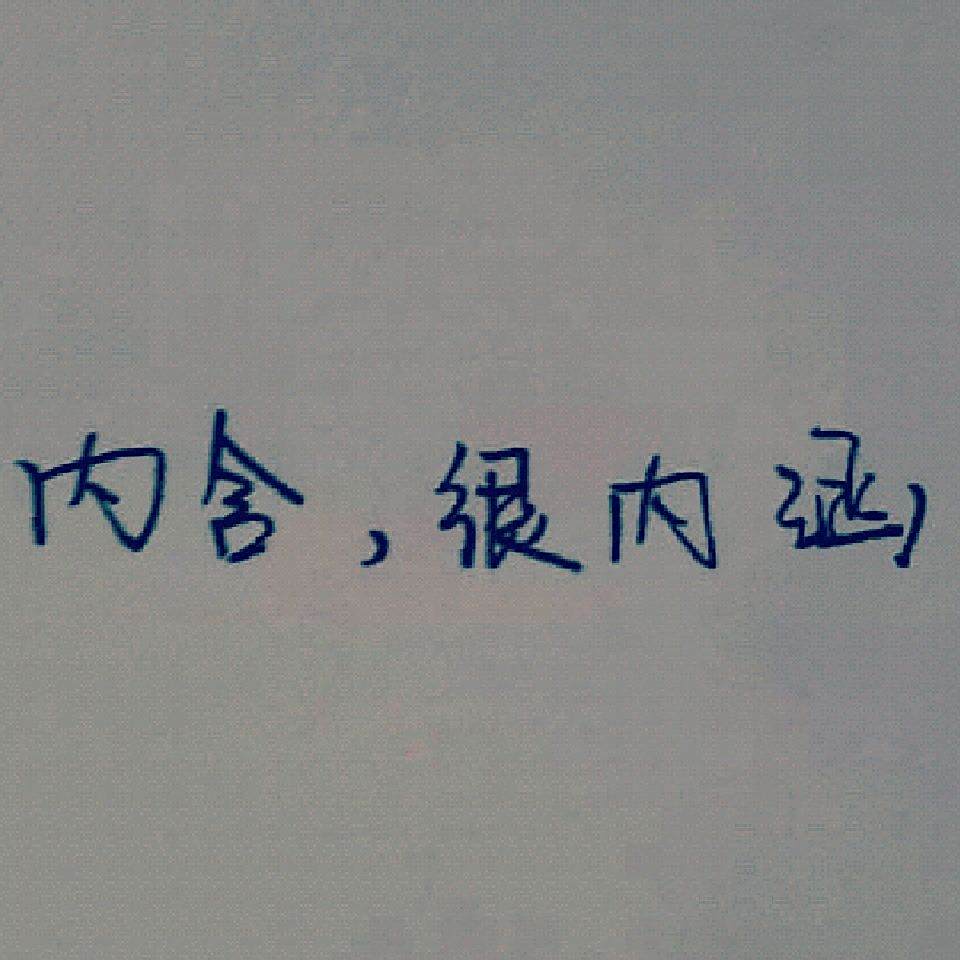 内含,很内涵